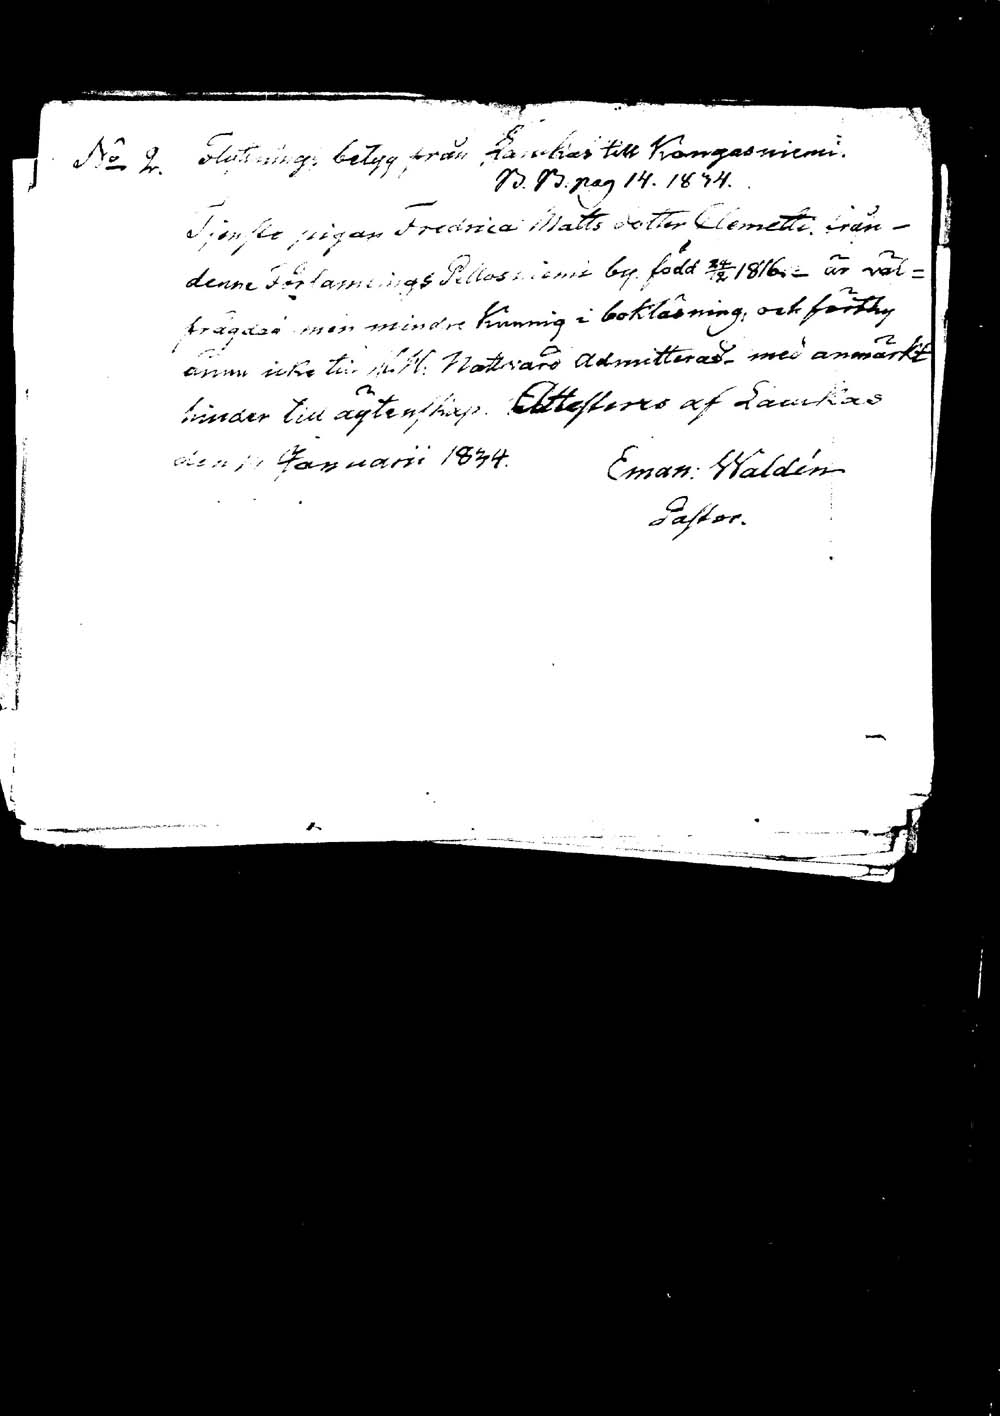 No 2. Flyttnings betyg från Laukas till Kangasniemi.
B. B. pag 14. 1834.
Tjenste pigan Fredrica Matts dotter Clemetti. från -
denne Församlings Pellosniemi by. född 24/2 1816. - är väl =
frägdad men mindre Kunnig i bokläsning, och förthy
ännu icke till H. H. Nattvard Admitterad. med anmärkt
hinder till ägtenskap. Attesteres af Laukas
den Januarii 1834. Eman: Waldén
Pastor.